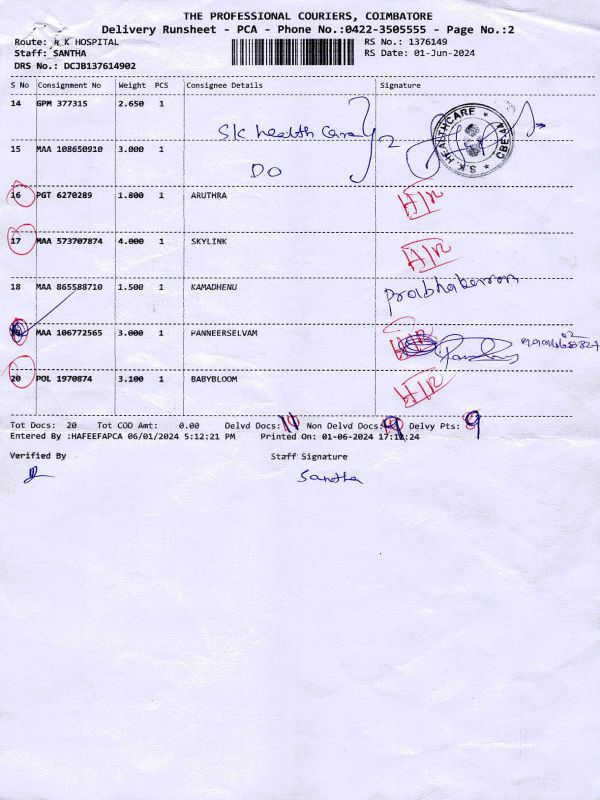 THE PROFESSIONAL COURIERS, COIMBATORE
Delivery Runsheet - PCA - Phone No.:0422-3505555 - Page No.:2
Route: R K HOSPITAL
RS No.: 1376149
Staff: SANTHA
RS Date: 01-Jun-2024
DRS No.: DCJB137614902
S No Consignment No Weight PCS Consignee Details Signature
14 GPM 377315 2.650 1
SK health care 2
S.K. HEALTHCARE CBE
15 MAA 108650910 3.000 1
DO
16 PGT 6270289 1.800 1 ARUTHRA
17 MAA 573707874 4.000 1 SKYLINK
18 MAA 865588710 1.500 1 KAMADHENU Prabhakaran
19 MAA 106772565 3.000 1 PANNEERSELVAM
20 POL 1970874 3.100 1 BABYBLOOM
Tot Docs: 20 Tot COD Amt: 0.00 Delvd Docs: 11 Non Delvd Docs: 9 Delvy Pts: 9
Entered By :HAFEEFAPCA 06/01/2024 5:12:21 PM Printed On: 01-06-2024 17:12:24
Verified By Staff Signature
Santha